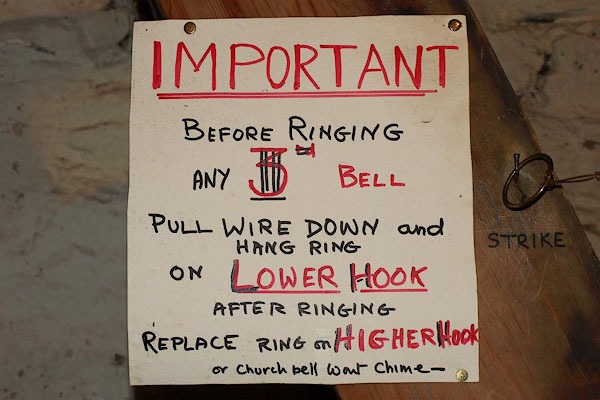 IMPORTANT
BEFORE RINGING
ANY 3RD BELL
PULL WIRE DOWN and
HANG RING
ON LOWER HOOK
AFTER RINGING
REPLACE RING on HIGHER HOOK
or Church bell wont Chime—
STRIKE